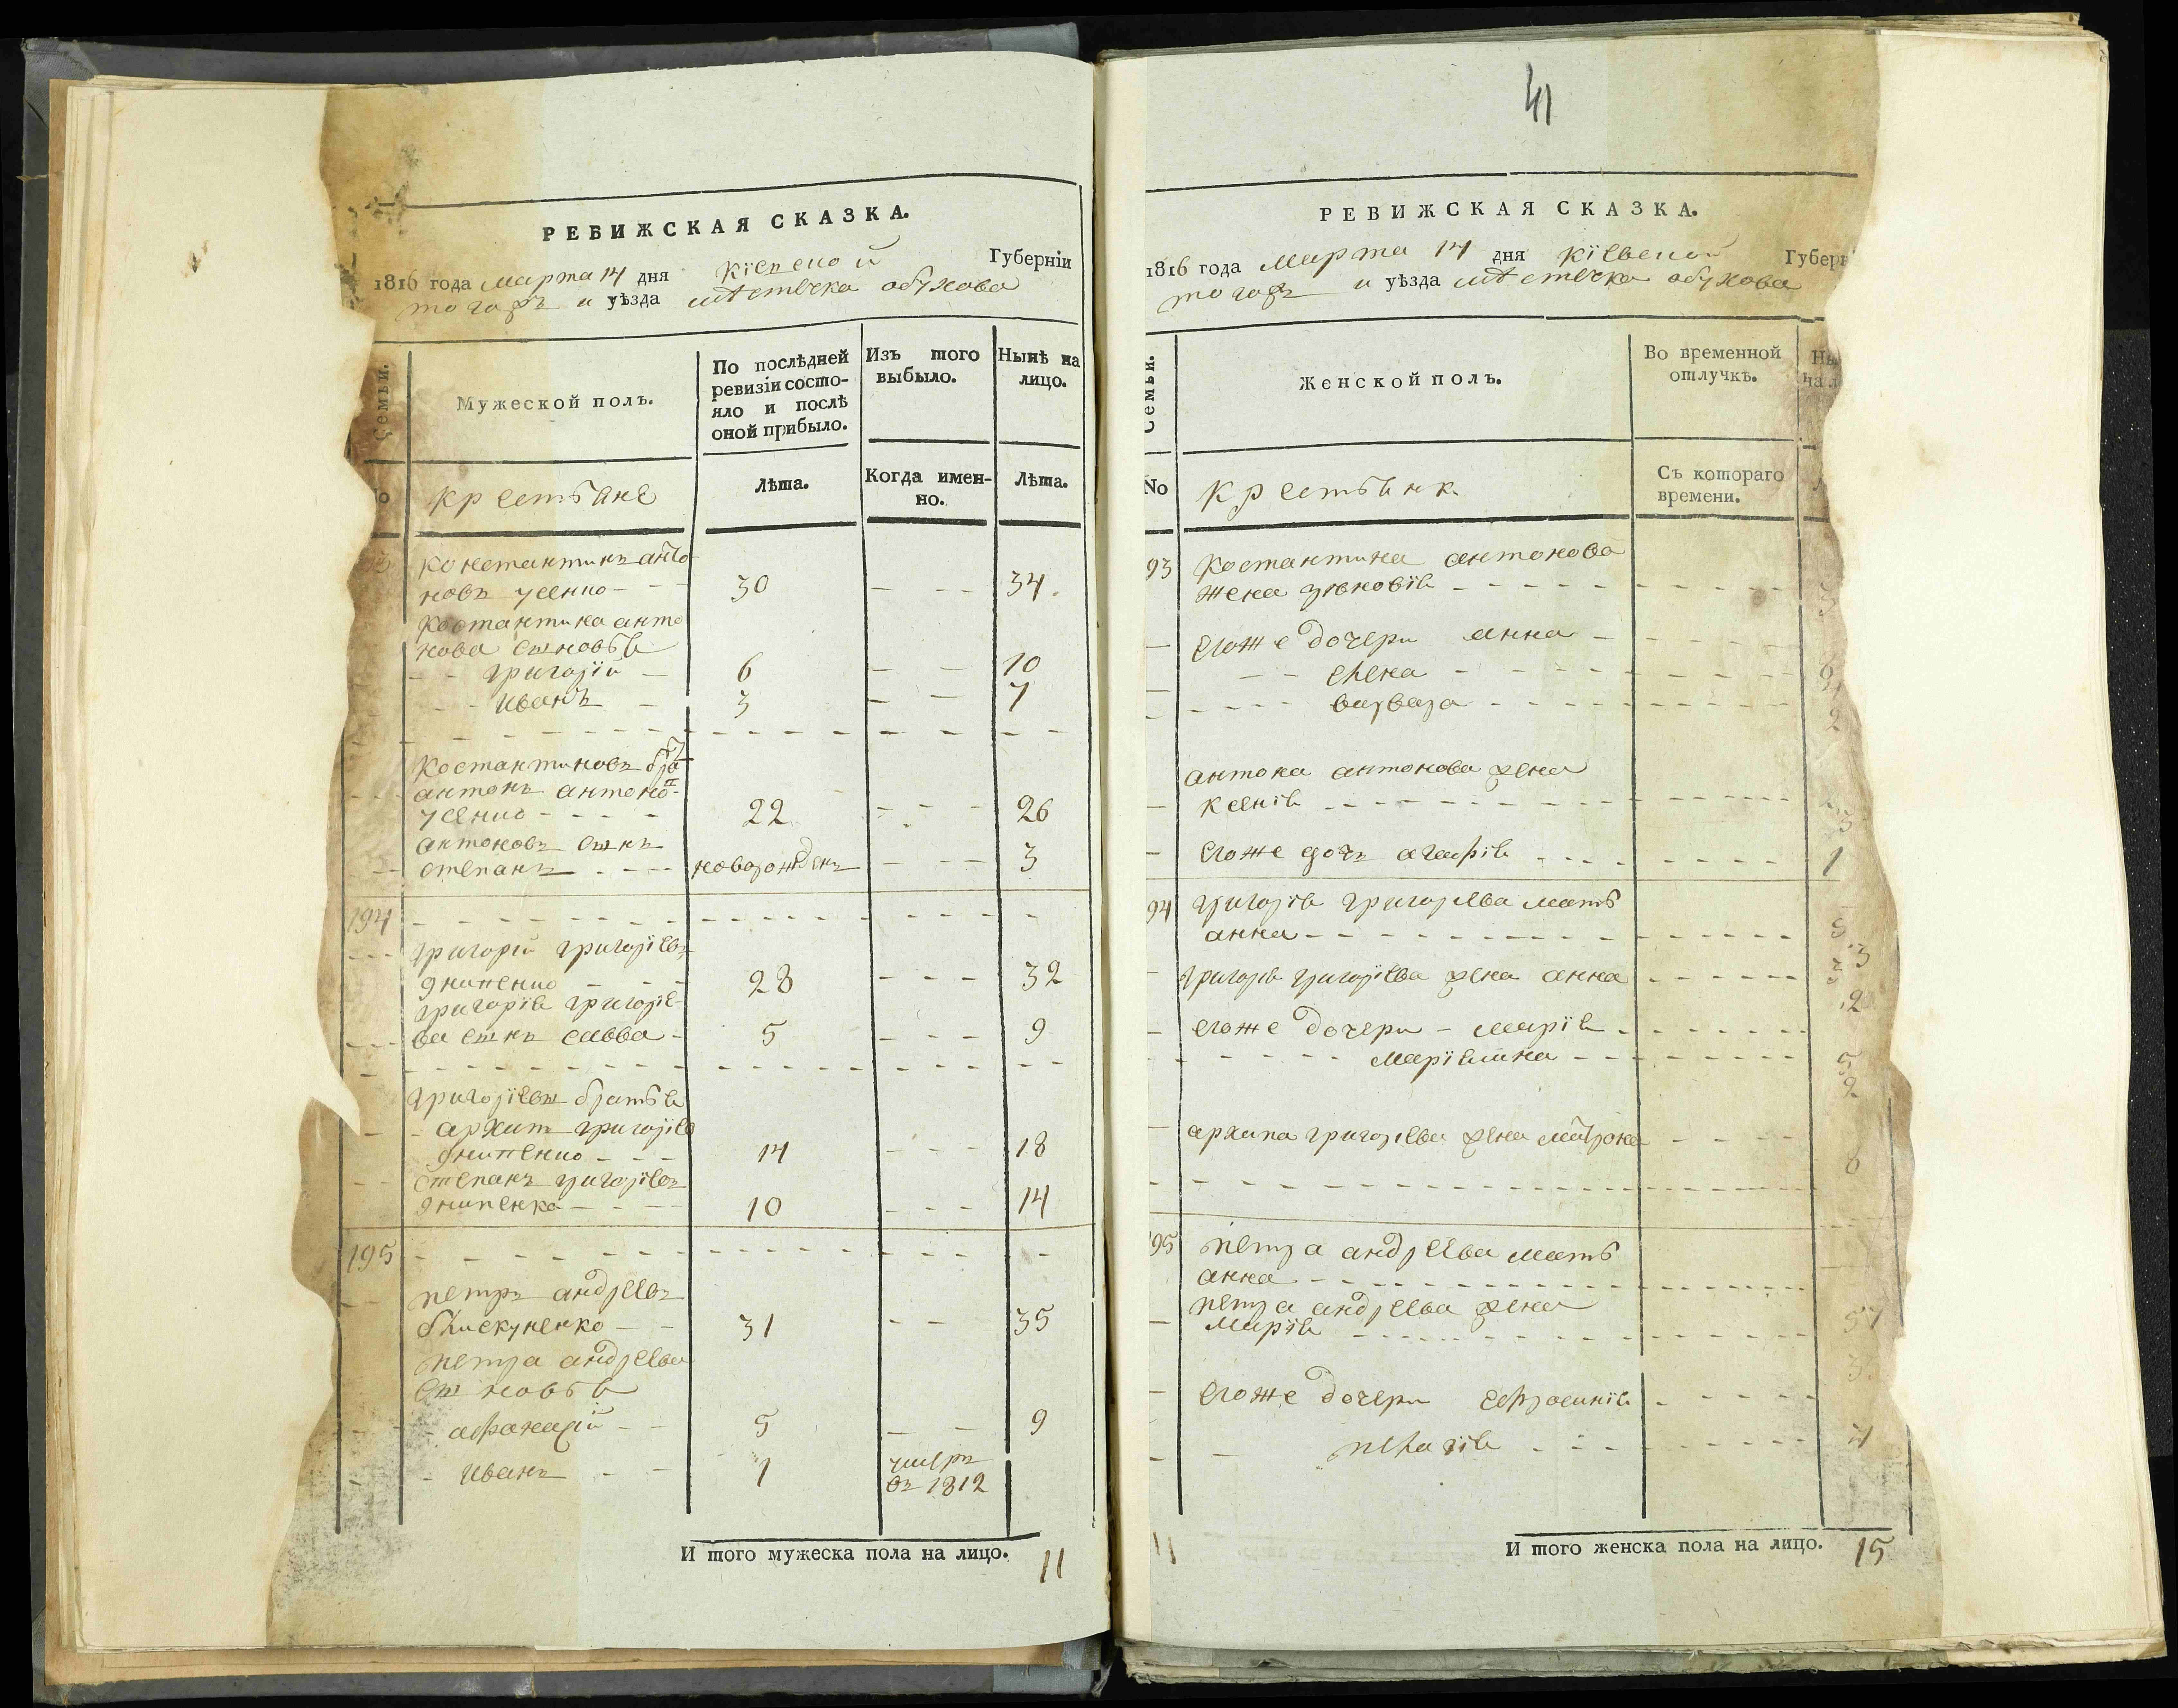 РЕВИЖСКАЯ СКАЗКА.
1816 года марта 14 дня Кіевской Губерніи
тогожъ и уѣзда мѣстечка обухова
Семьи.
Мужеской полъ.
По послѣдней ревизіи состо-
яло и послѣ
оной прибыло.
Изъ того
выбыло.
Нынѣ на
лицо.
No
крестьяне
Лѣта.
Когда имен-
но.
Лѣта.
константинъ анто
новъ усенко 30 34.
костантина анто
нова сыновья
григорій 6 10
иванъ 3 7
костантиновъ бра
антонъ антоно
усенко 22 26
антоновъ сынъ
степанъ новорожденъ 3
194
григорій григоріевъ
днипенко 28 32
григорія григоріе
ва сынъ савва 5 9
григоріевы братья
архипъ григоріев
днипенко 14 18
степанъ григоріевъ
днипенко 10 14
195
петръ андреевъ
блискуненко 31 35
петра андреева
сыновья
афанасій 5 9
иванъ 1 умеръ
въ 1812
И того мужеска пола на лицо. 11
41
РЕВИЖСКАЯ СКАЗКА.
1816 года марта 14 дня Кіевской Губерн
тогожъ и уѣзда мѣстечка обухова
Семьи.
Женской полъ.
Во временной
отлучкѣ.
Ны
на л
No
крестьянк
Съ котораго
времени.
93 костантина антонова
жена зѣновія
егоже дочери анна
елена 6
варвара 2
антона антонова жена
ксенія
егоже дочь агафія 1
94 григорія григорьева мать
анна
григорія григоріева жена анна
егоже дочери - марія
маріамна 5
2
архипа григорьева жена матрона
95 петра андреева мать
анна
петра андреева жена
марія 57
егоже дочери ефросинія
пелагія
11
И того женска пола на лицо. 15